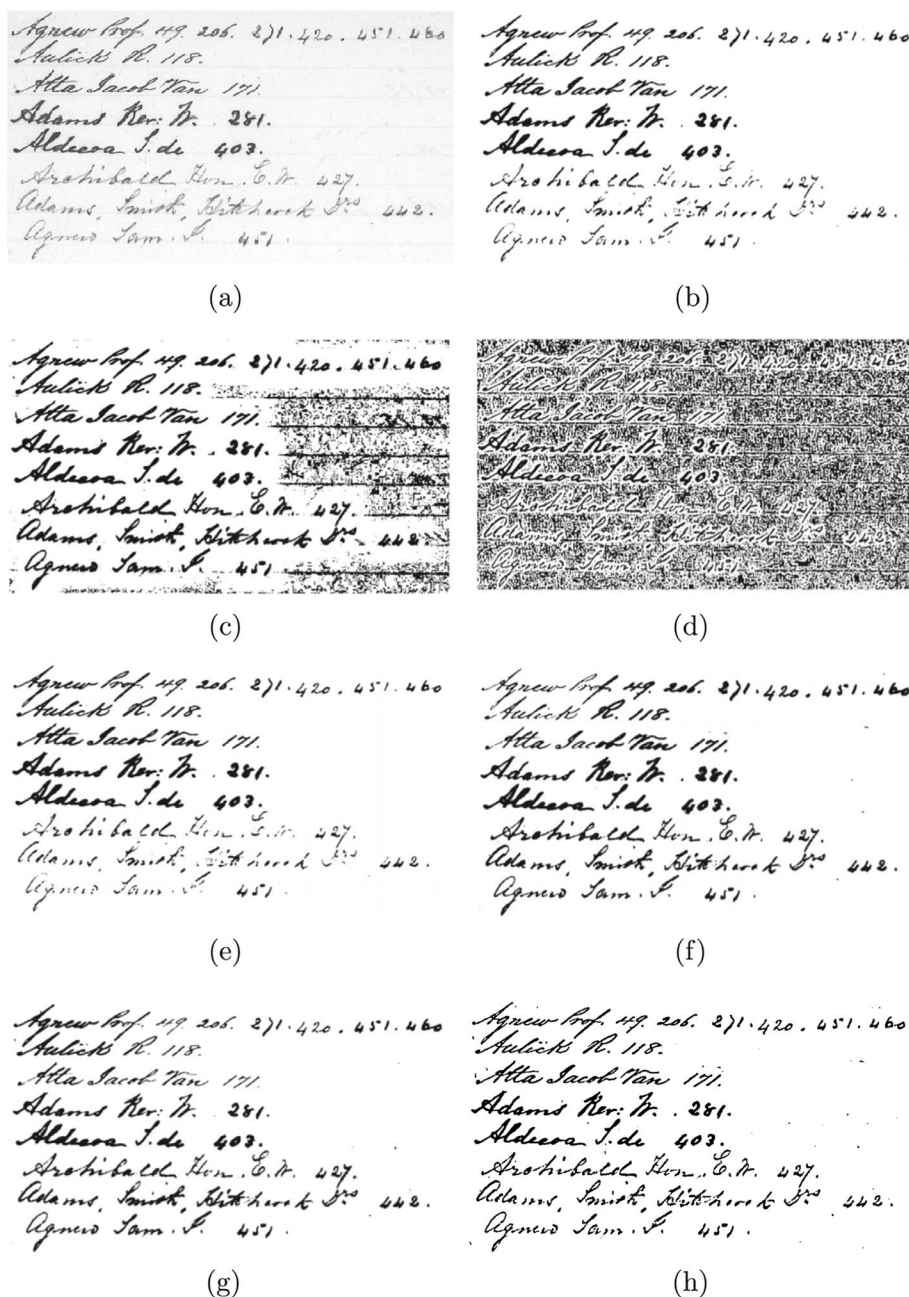 Agnew Prof. 49. 206. 271. 420. 451. 460
Aulick R. 118.
Atta Jacob Van 171.
Adams Rev: W. 281.
Aldecoa J. de 403.
Archibald Hon. E. W. 427.
Adams, Smith, Hitchcock Drs 442.
Agnew Sam. J. 451.
(a)
Agnew Prof. 49. 206. 271. 420. 451. 460
Aulick R. 118.
Atta Jacob Van 171.
Adams Rev: W. 281.
Aldecoa J. de 403.
Archibald Hon. E. W. 427.
Adams, Smith, Hitchcock Drs 442.
Agnew Sam. J. 451.
(b)
Agnew Prof. 49. 206. 271. 420. 451. 460
Aulick R. 118.
Atta Jacob Van 171.
Adams Rev: W. 281.
Aldecoa J. de 403.
Archibald Hon. E. W. 427.
Adams, Smith, Hitchcock Drs 442.
Agnew Sam. J. 451
(c)
Agnew Prof. 49. 206. 271. 420. 451. 460
Aulick R. 118
Atta Jacob Van 171
Adams Rev. W. 281.
Aldecoa J. de 403.
Archibald Hon. E. W. 427
Adams, Smith, Hitchcock Drs 442
Agnew Sam. J. 451
(d)
Agnew Prof. 49. 206. 271. 420. 451. 460
Aulick R. 118.
Atta Jacob Van 171.
Adams Rev: W. 281.
Aldecoa J. de 403.
Archibald Hon. E. W. 427.
Adams, Smith, Hitchcock Drs 442.
Agnew Sam. J. 451.
(e)
Agnew Prof. 49. 206. 271. 420. 451. 460
Aulick R. 118.
Atta Jacob Van 171.
Adams Rev: W. 281.
Aldecoa J. de 403.
Archibald Hon. E. W. 427.
Adams, Smith, Hitchcock Drs 442.
Agnew Sam. J. 451.
(f)
Agnew Prof. 49. 206. 271. 420. 451. 460
Aulick R. 118.
Atta Jacob Van 171.
Adams Rev: W. 281.
Aldecoa J. de 403.
Archibald Hon. E. W. 427.
Adams, Smith, Hitchcock Drs 442.
Agnew Sam. J. 451.
(g)
Agnew Prof. 49. 206. 271. 420. 451. 460
Aulick R. 118.
Atta Jacob Van 171.
Adams Rev: W. 281.
Aldecoa J. de 403.
Archibald Hon. E. W. 427.
Adams, Smith, Hitchcock Drs 442.
Agnew Sam. J. 451.
(h)